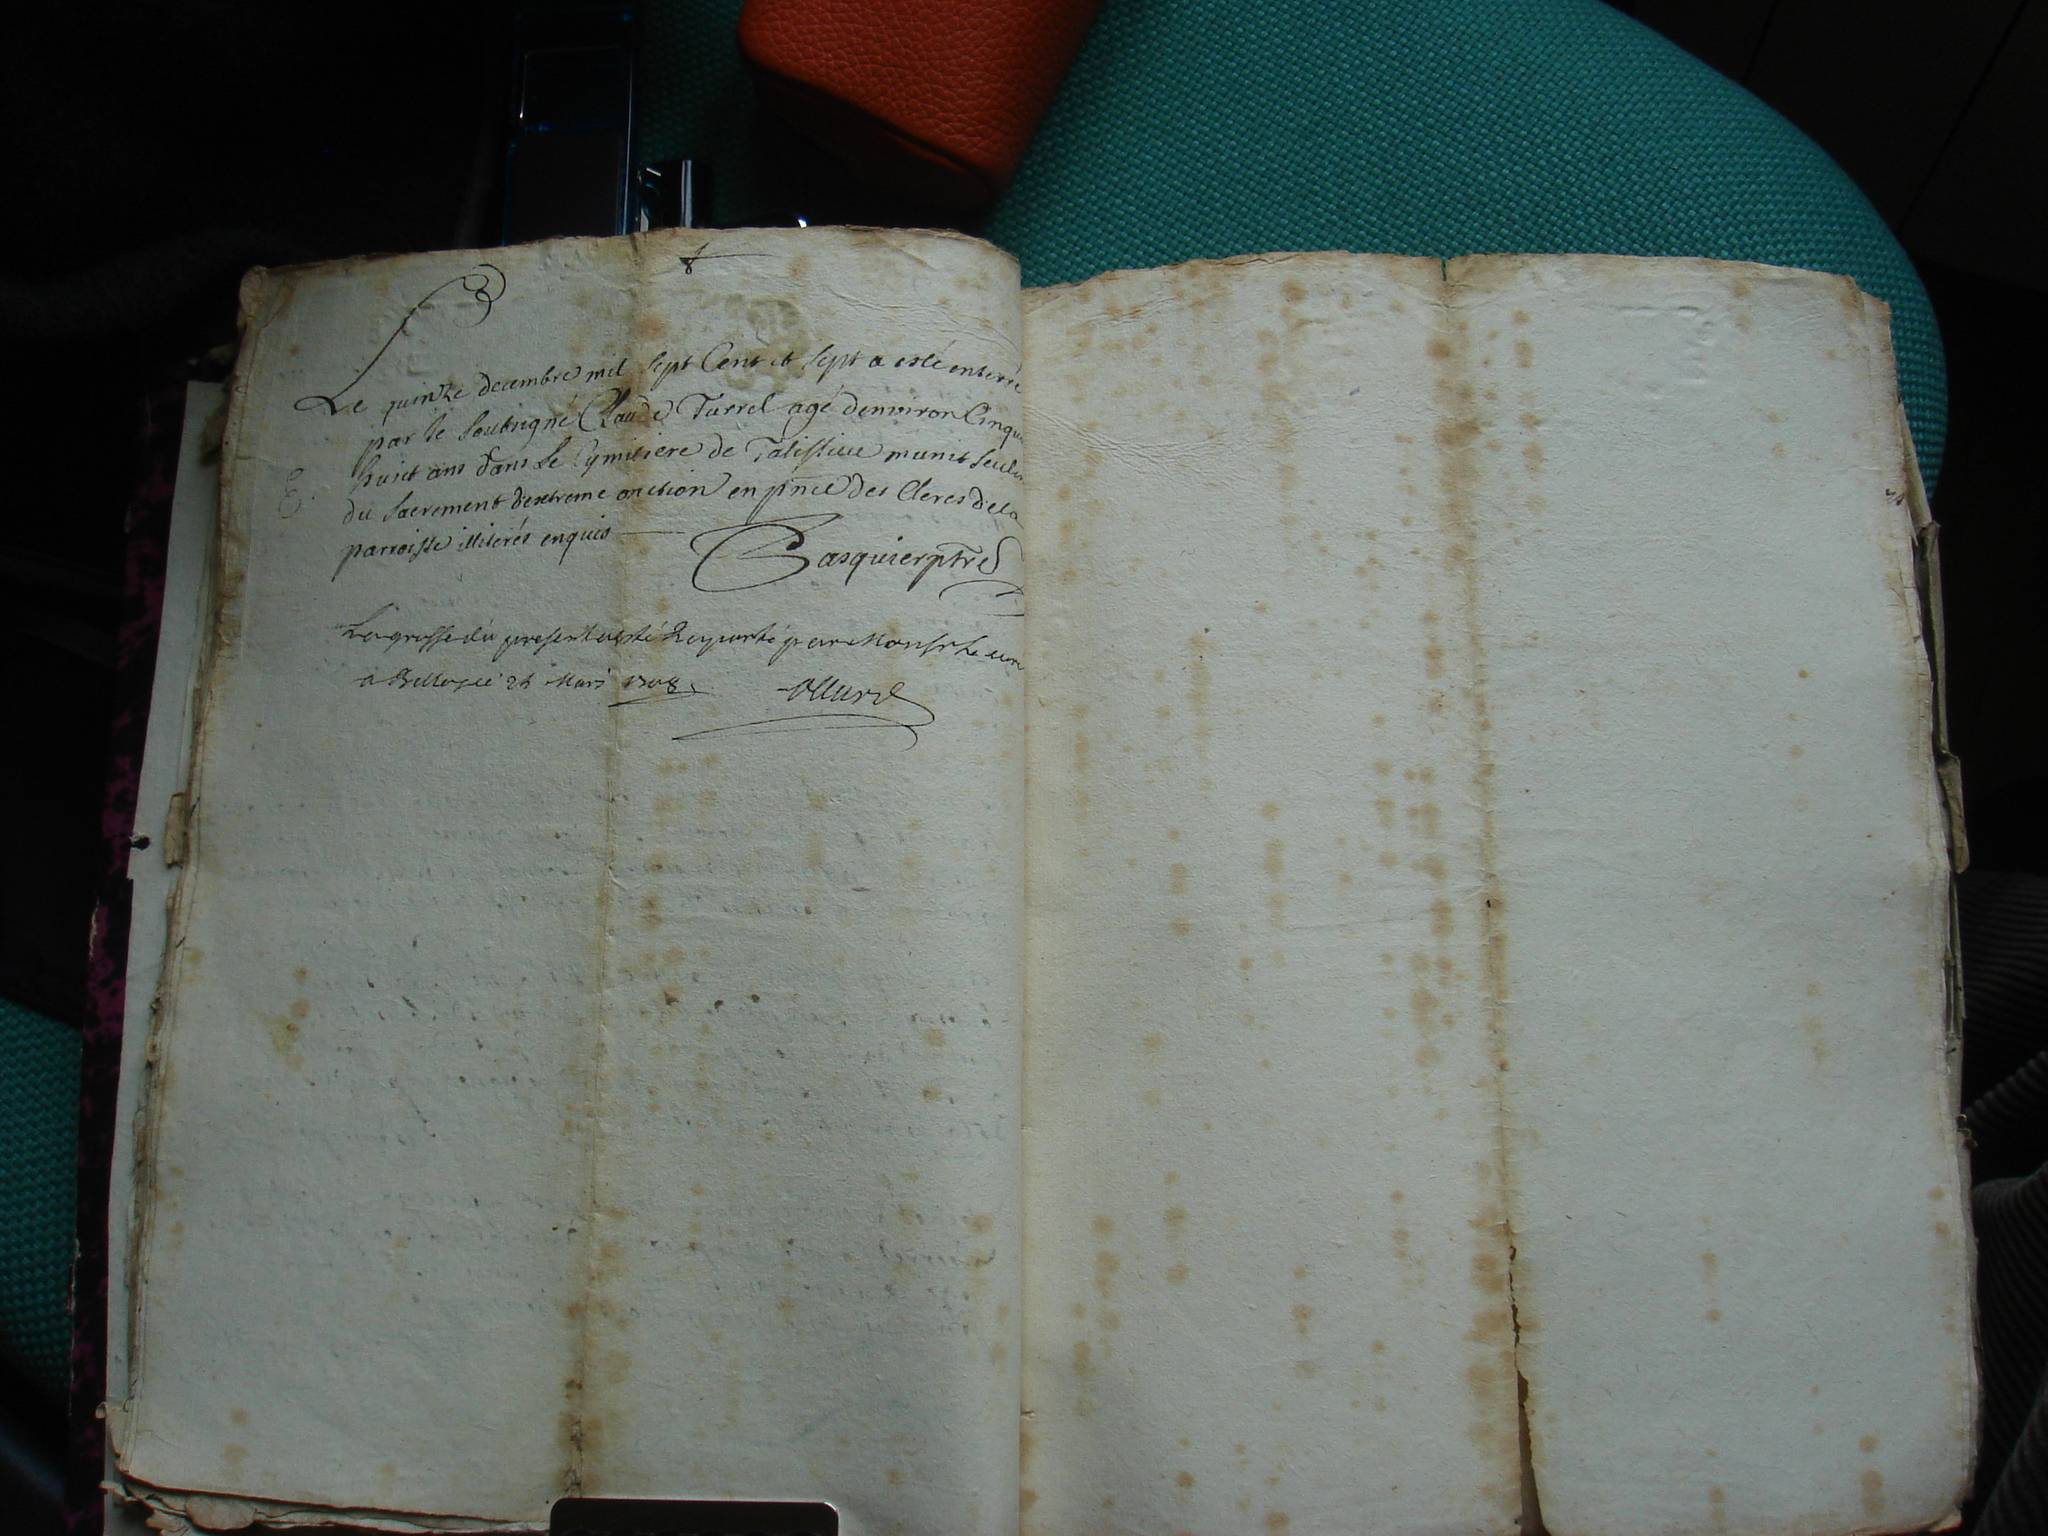 8
Le quinze decembre mil sept Cent et sept a esté enterré
par le soubsigné Claude Turrel agé denviron Cinqu
huict ans dans le Cymitiere de Talissieu munit seulem
E. du sacrement d'extreme onction en pnce des Clercs de la
parroisse illiterés enquis
Pasquier ptre
La grosse du present a esté Raporté par Monsr Le curé
a Belley ce 26 Mars 1708